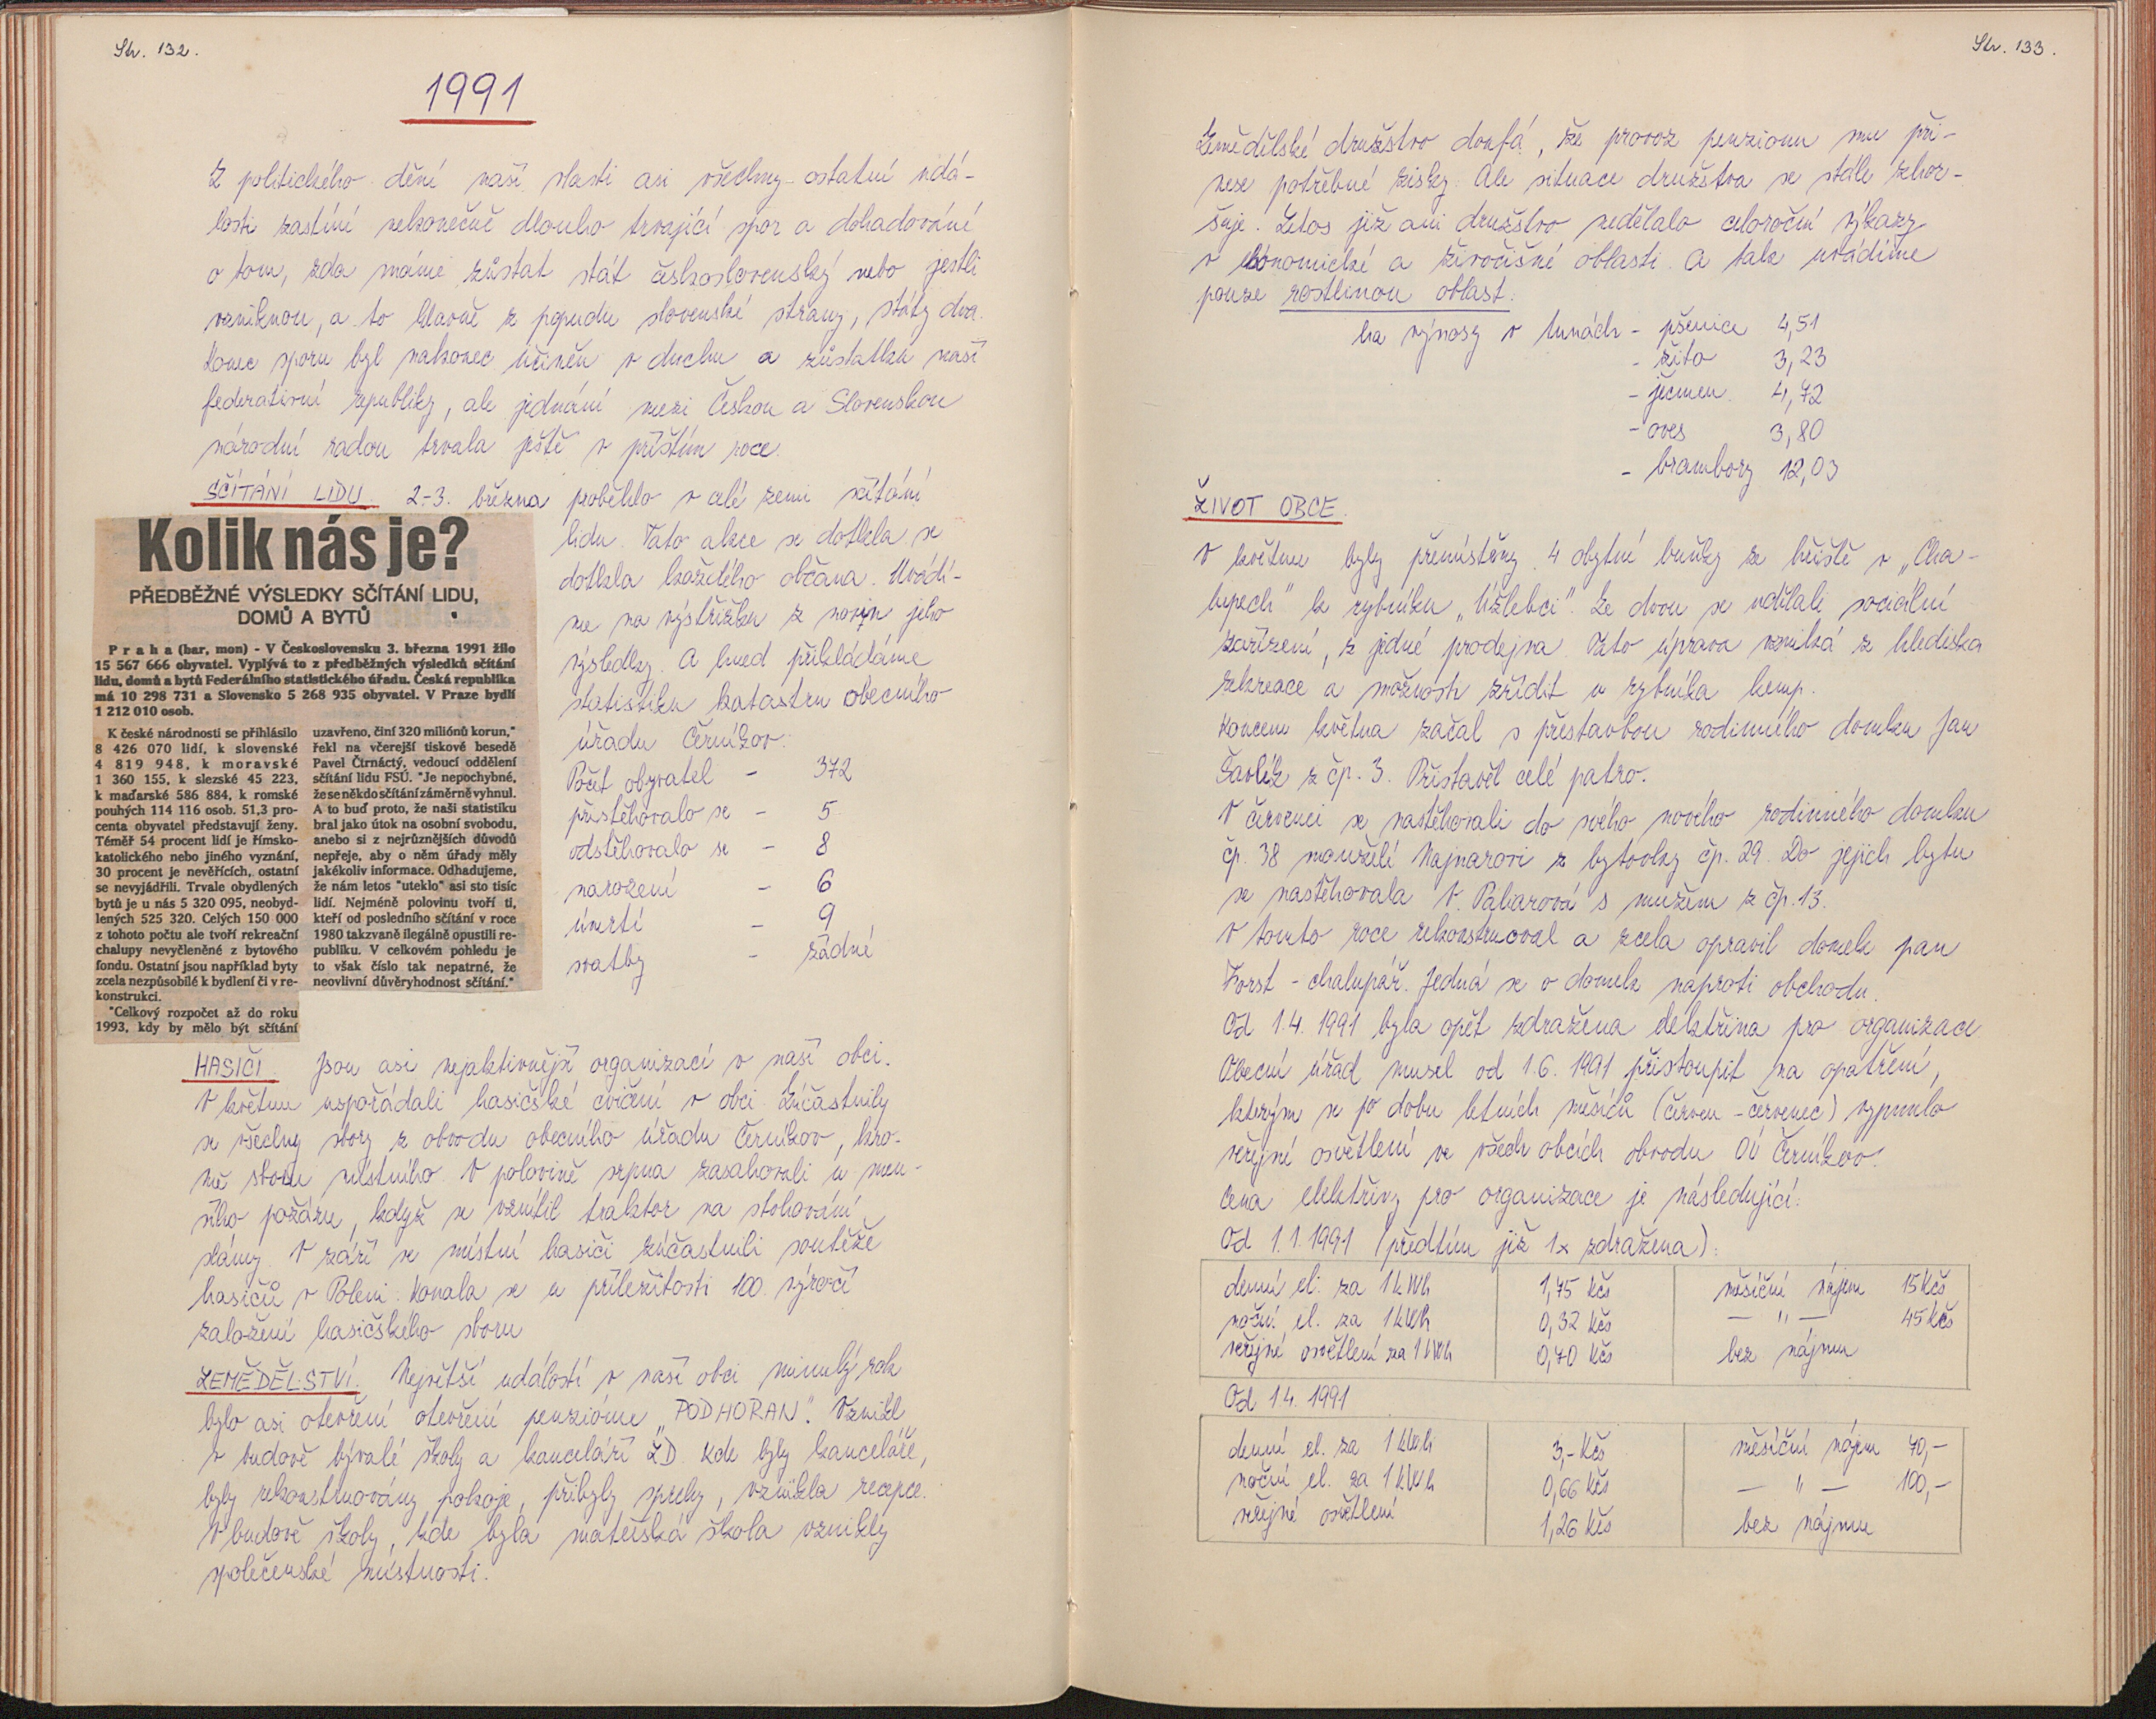 Str. 132.
1991
Z politického dění naší vlasti asi všechny ostatní udá-
losti zastíní nekonečně dlouho trvající spor a dohadování
o tom, zda máme zůstat stát československý nebo jestli
vzniknou, a to hlavně z popudu slovenské strany, státy dva.
Konec sporu byl nakonec učiněn v duchu a zůstatku naší
federativní republiky, ale jednání mezi Českou a Slovenskou
národní radou trvala ještě v příštím roce.
SČÍTÁNÍ LIDU 2.-3. března proběhlo v celé zemi sčítání
lidu. Tato akce se dotkla se
dotkla každého občana. Uvádí-
me na výstřižku z novin jeho
výsledky. A hned přikládáme
statistiku katastru obecního
úřadu Černíkov:
Počet obyvatel - 372
přistěhovalo se - 5
odstěhovalo se - 8
narození - 6
úmrtí - 9
svatby - žádné
Kolik nás je?
PŘEDBĚŽNÉ VÝSLEDKY SČÍTÁNÍ LIDU,
DOMŮ A BYTŮ
Praha (bar, mon) - V Československu 3. března 1991 žilo
15 567 666 obyvatel. Vyplývá to z předběžných výsledků sčítání
lidu, domů a bytů Federálního statistického úřadu. Česká republika
má 10 298 731 a Slovensko 5 268 935 obyvatel. V Praze bydlí
1 212 010 osob.
K české národnosti se přihlásilo
8 426 070 lidí, k slovenské
4 819 948, k moravské
1 360 155, k slezské 45 223,
k maďarské 586 884, k romské
pouhých 114 116 osob. 51,3 pro-
centa obyvatel představují ženy.
Téměř 54 procent lidí je římsko-
katolického nebo jiného vyznání,
30 procent je nevěřících, ostatní
se nevyjádřili. Trvale obydlených
bytů je u nás 5 320 095, neobyd-
lených 525 320. Celých 150 000
z tohoto počtu ale tvoří rekreační
chalupy nevyčleněné z bytového
fondu. Ostatní jsou například byty
zcela nezpůsobilé k bydlení či v re-
konstrukci.
"Celkový rozpočet až do roku
1993, kdy by mělo být sčítání
uzavřeno, činí 320 miliónů korun,"
řekl na včerejší tiskové besedě
Pavel Čtrnáctý, vedoucí oddělení
sčítání lidu FSÚ. "Je nepochybné,
že se někdo sčítání záměrně vyhnul.
A to buď proto, že naši statistiku
bral jako útok na osobní svobodu,
anebo si z nejrůznějších důvodů
nepřeje, aby o něm úřady měly
jakékoliv informace. Odhadujeme,
že nám letos "uteklo" asi sto tisíc
lidí. Nejméně polovinu tvoří ti,
kteří od posledního sčítání v roce
1980 takzvaně ilegálně opustili re-
publiku. V celkovém pohledu je
to však číslo tak nepatrné, že
neovlivní důvěryhodnost sčítání."
HASIČI Jsou asi nejaktivnější organizací v naší obci.
V květnu uspořádali hasičské cvičení v obci. Zúčastnily
se všechny sbory z obvodu obecního úřadu Černíkov, kro-
mě sboru místního. V polovině srpna zasahovali u men-
šího požáru, když se vznítil traktor na stohování
slámy. V září se místní hasiči zúčastnili soutěže
hasičů v Poleni. Konala se u příležitosti 100. výročí
založení hasičského sboru
ZEMĚDĚLSTVÍ. Největší událostí v naší obci minulý rok
bylo asi otevření otevření penziónu "PODHORAN". Vznikl
v budově bývalé školy a kanceláří ZD. Kde byly kanceláře,
byly rekonstruovány pokoje, přibyly sprchy, vznikla recepce.
V budově školy, kde byla mateřská škola vznikly
společenské místnosti.
Str. 133.
Zemědělské družstvo doufá, že provoz penzionu mu při-
nese potřebné zisky. Ale situace družstva se stále zhor-
šuje. Letos již ani družstvo nedělalo celoroční výkazy
v ekonomické a živočišné oblasti. A tak uvádíme
pouze rostlinou oblast:
ha výnosy v tunách - pšenice 4,51
- žito 3,23
- ječmen 4,72
- oves 3,80
- brambory 12,03
ŽIVOT OBCE.
V květnu byly přemístěny 4 obytné buňky ze hřiště v „Cha-
lupech" k rybníku „Úžlebci". Ze dvou se udělali sociální
zařízení, z jedné prodejna. Tato úprava vzniká z hlediska
rekreace a možnosti zřídit u rybníka kemp.
Koncem května začal s přestavbou rodinného domku Jan
Šavlík z čp. 3. Přistavěl celé patro.
V červenci se nastěhovali do svého nového rodinného domku
čp. 38 manželé Majnarovi z bytovky čp. 29. Do jejich bytu
se nastěhovala V. s mužem z čp. 13.
V tomto roce rekonstruoval a zcela opravil domek pan
Forst - chalupář. Jedná se o domek naproti obchodu.
Od 1.4. 1991 byla opět zdražena elektřina pro organizace
Obecní úřad musel od 1.6. 1991 přistoupit na opatření,
kterým se po dobu letních měsíců (červen - červenec) vypnulo
veřejné osvětlení ve všech obcích obvodu OÚ Černíkov.
Cena elektřiny pro organizace je následující:
Od 1.1.1991 (předtím již 1x zdražena):
denní el. za 1 kWh 1,75 Kčs měsíční nájem 15 Kčs
noční el. za 1 kWh 0,32 Kčs — " — 45 Kčs
veřejné osvětlení za 1 kWh 0,70 Kčs bez nájmu
Od 1.4. 1991
denní el. za 1 kWh 3,- Kčs měsíční nájem 40,-
noční el. za 1 kWh 0,66 Kčs — " — 100,-
veřejné osvětlení 1,26 Kčs bez nájmu